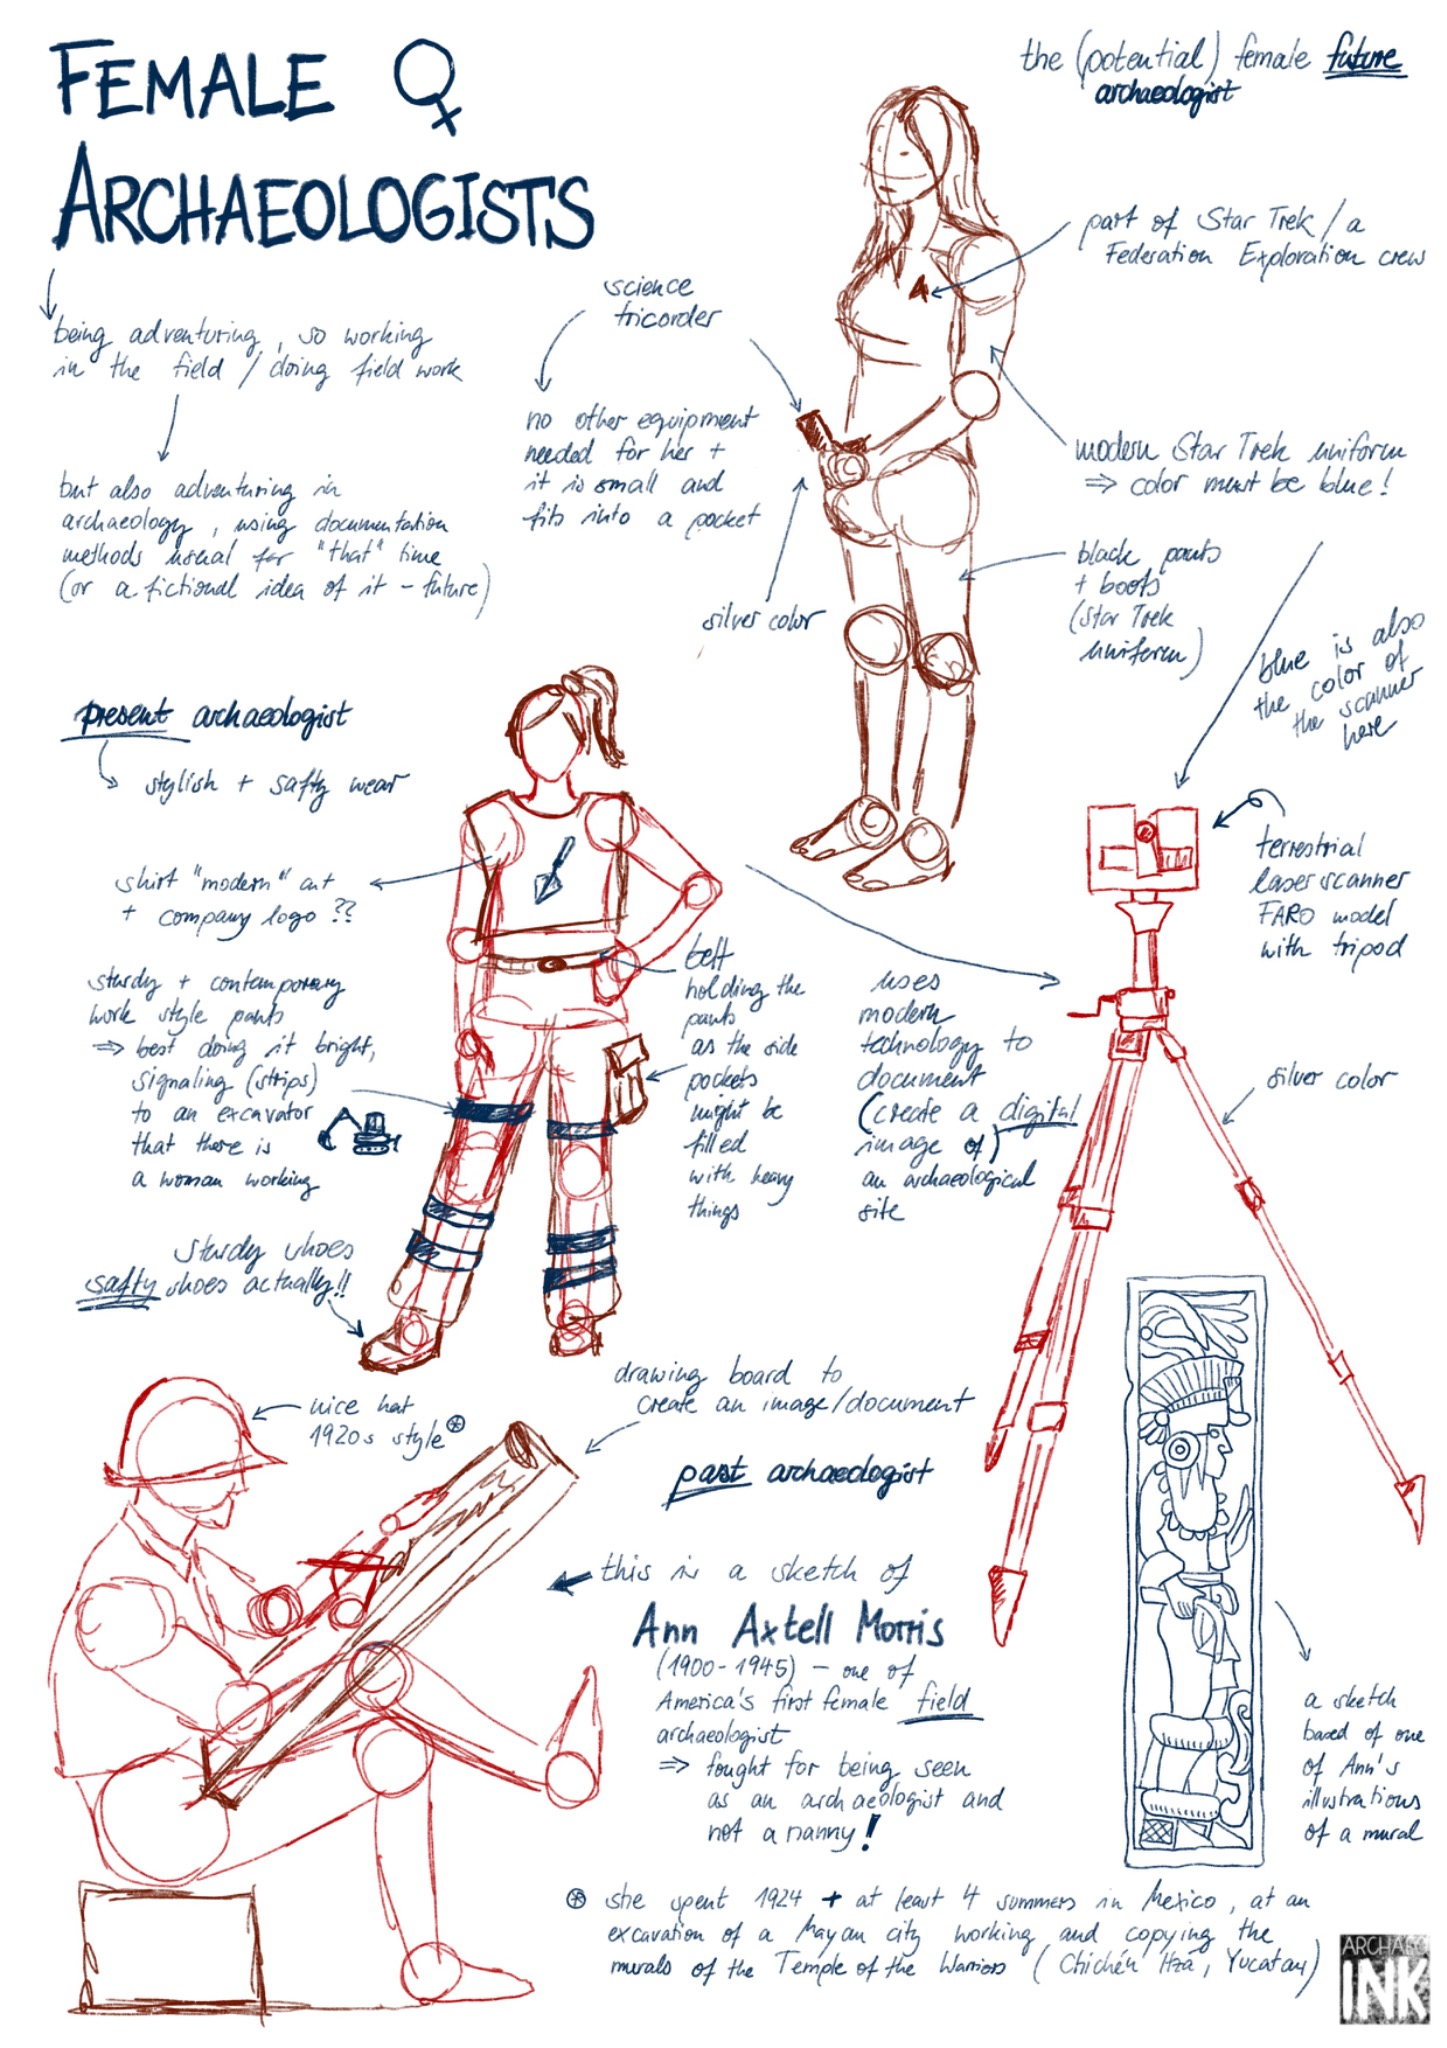 FEMALE ♀
ARCHAEOLOGISTS
being adventuring, so working
in the field / doing field work
but also adventuring in
archaeology, using documentation
methods usual for "that" time
(or a fictional idea of it – future)
the (potential) female future
archaeologist
part of Star Trek / a
Federation Exploration crew
science
tricorder
no other equipment
needed for her +
it is small and
fits into a pocket
silver color
modern Star Trek uniform
⇒ color must be blue!
black pants
+ boots
(Star Trek
uniform)
blue is also
the color of
the scanner
here
present archaeologist
stylish + safty wear
shirt "modern" cut
+ company logo ??
sturdy + contemporary
work style pants
⇒ best doing it bright,
signaling (strips)
to an excavator
that there is
a woman working
sturdy shoes
safty shoes actually!!
belt
holding the
pants
as the side
pockets
might be
filled
with heavy
things
uses
modern
technology to
document
(create a digital
image of)
an archaeological
site
terrestrial
laserscanner
FARO model
with tripod
silver color
nice hat
1920s style ⊛
drawing board to
create an image/document
past archaeologist
this is a sketch of
Ann Axtell Morris
(1900-1945) – one of
America's first female field
archaeologist
⇒ fought for being seen
as an archaeologist and
not a nanny!
a sketch
based of one
of Ann's
illustrations
of a mural
⊛ she spent 1924 + at least 4 summers in Mexico, at an
excavation of a Mayan city working and copying the
murals of the Temple of the Warriors (Chichén Itzá, Yucatan)
ARCHAEO
INK